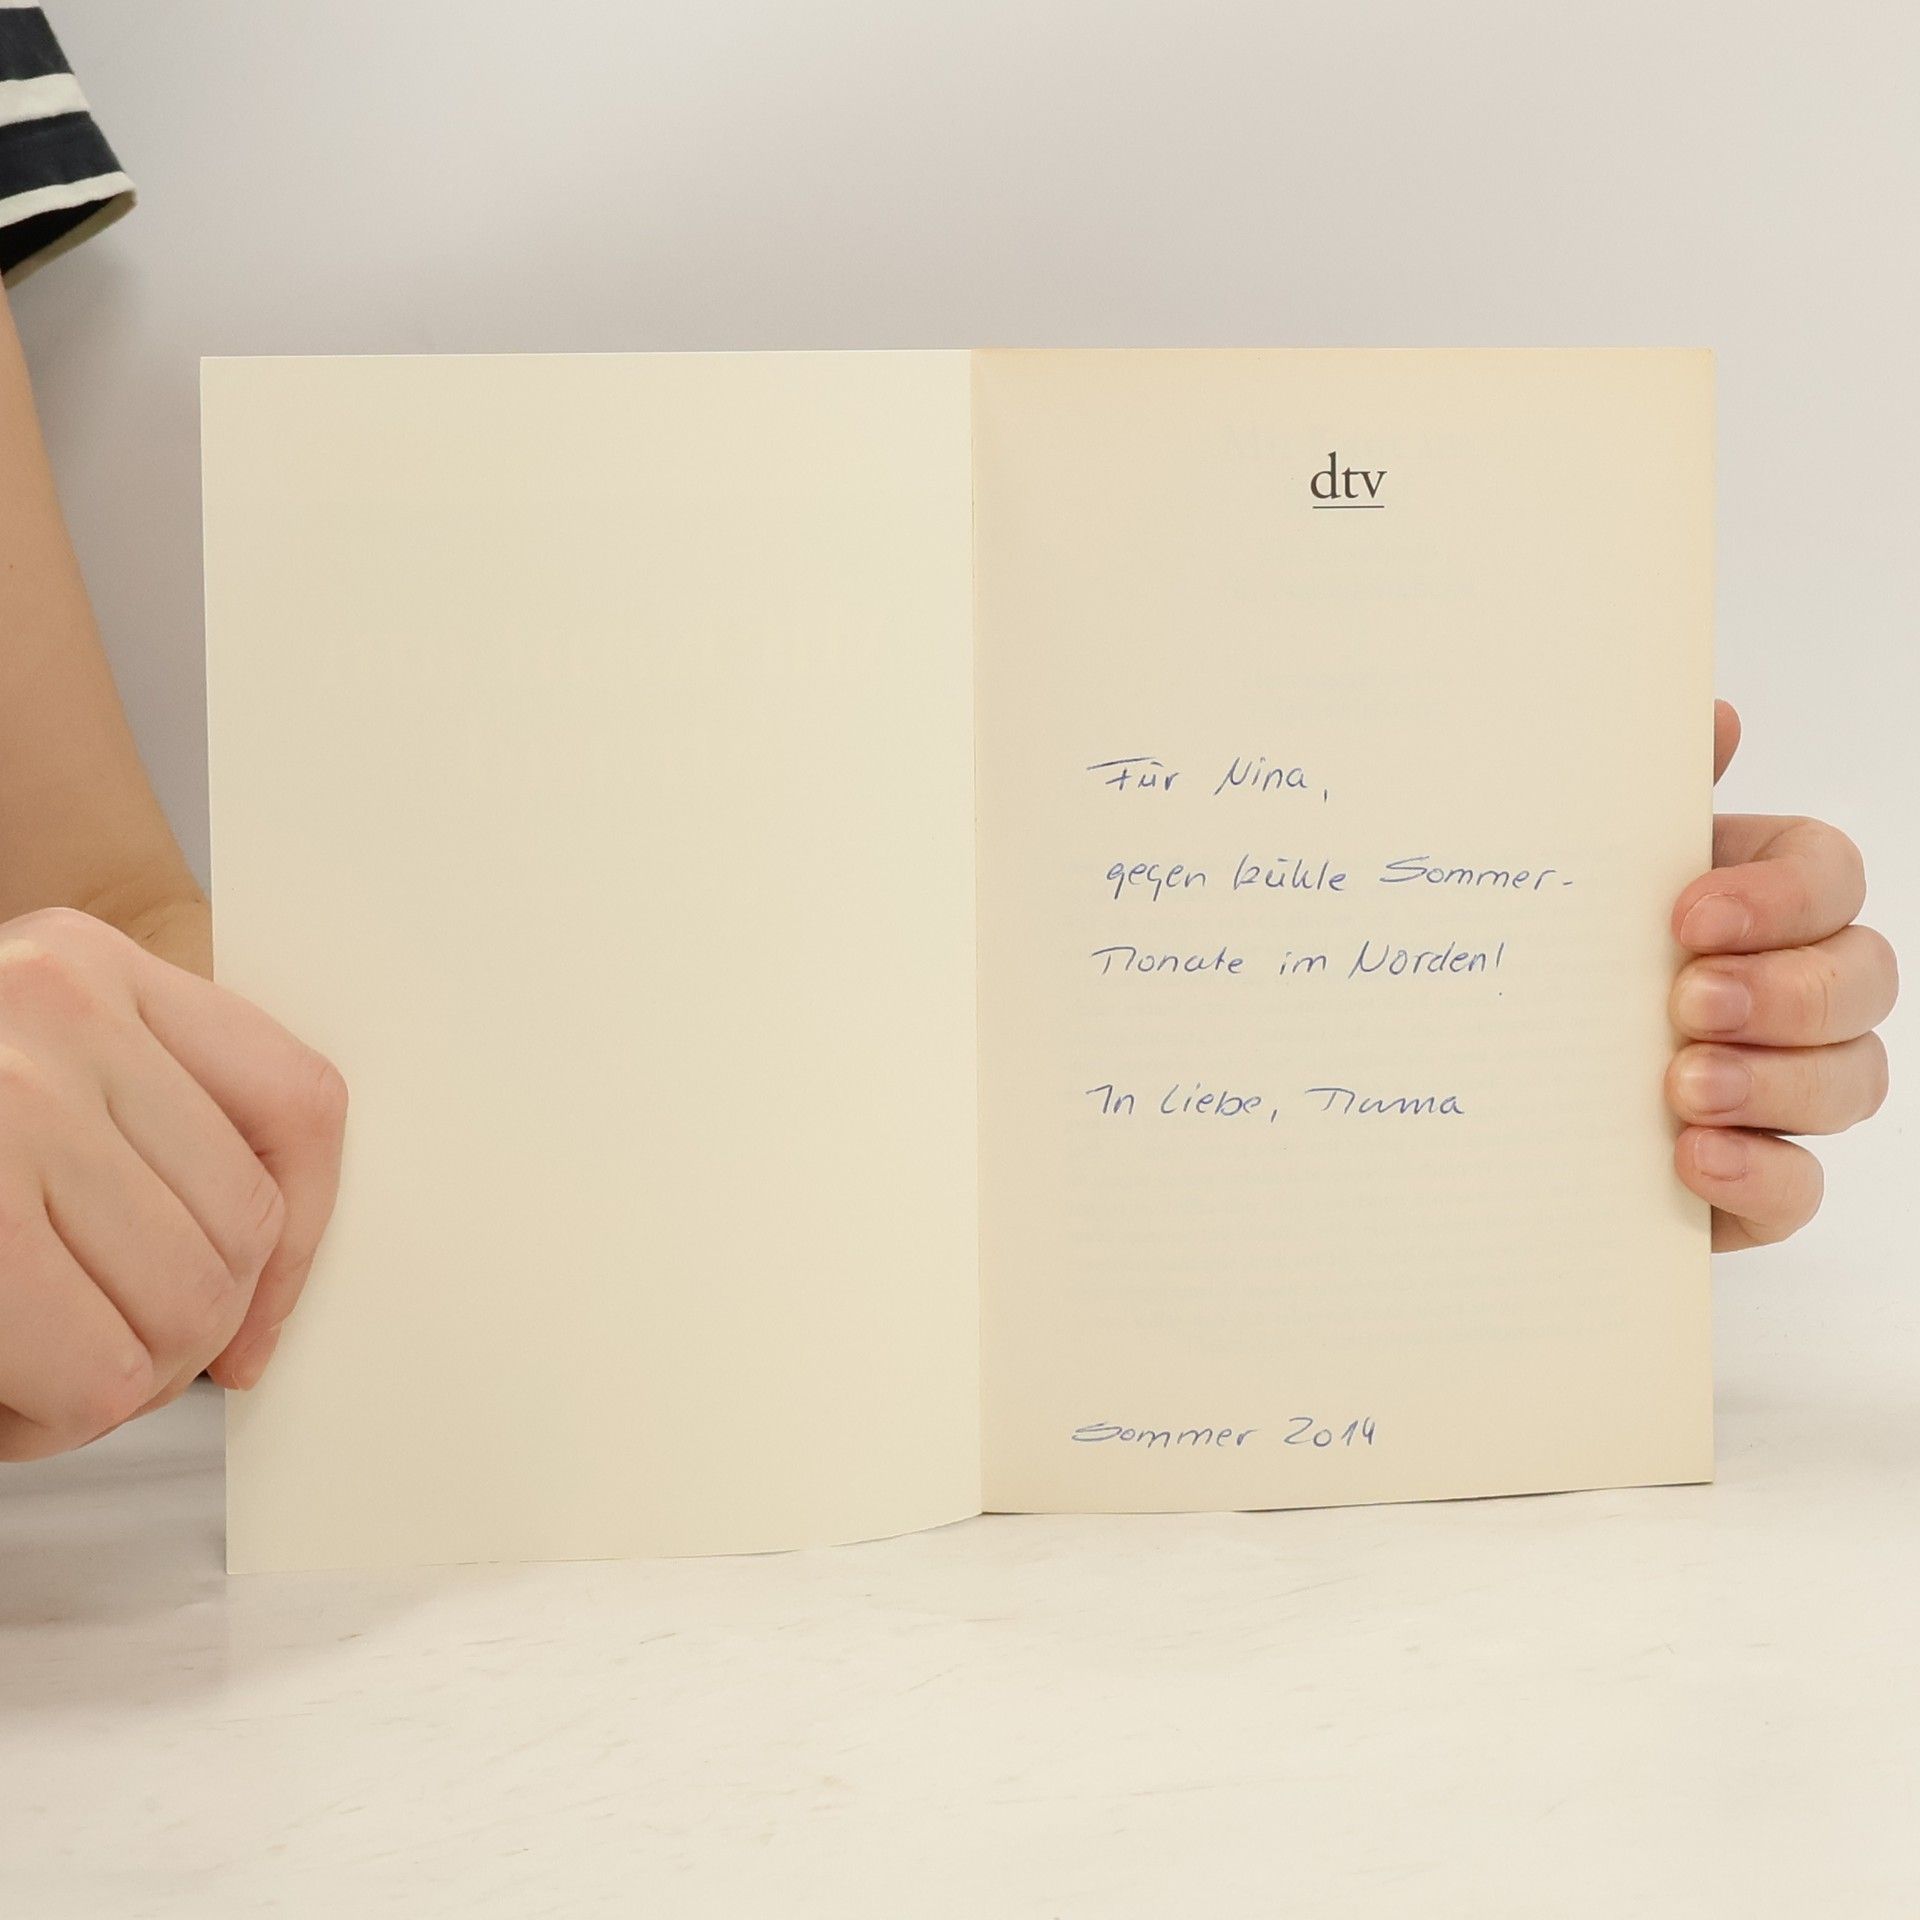 dtv
Für Nina,
gegen kühle Sommer-
Monate im Norden!
In Liebe, Mama
Sommer 2014